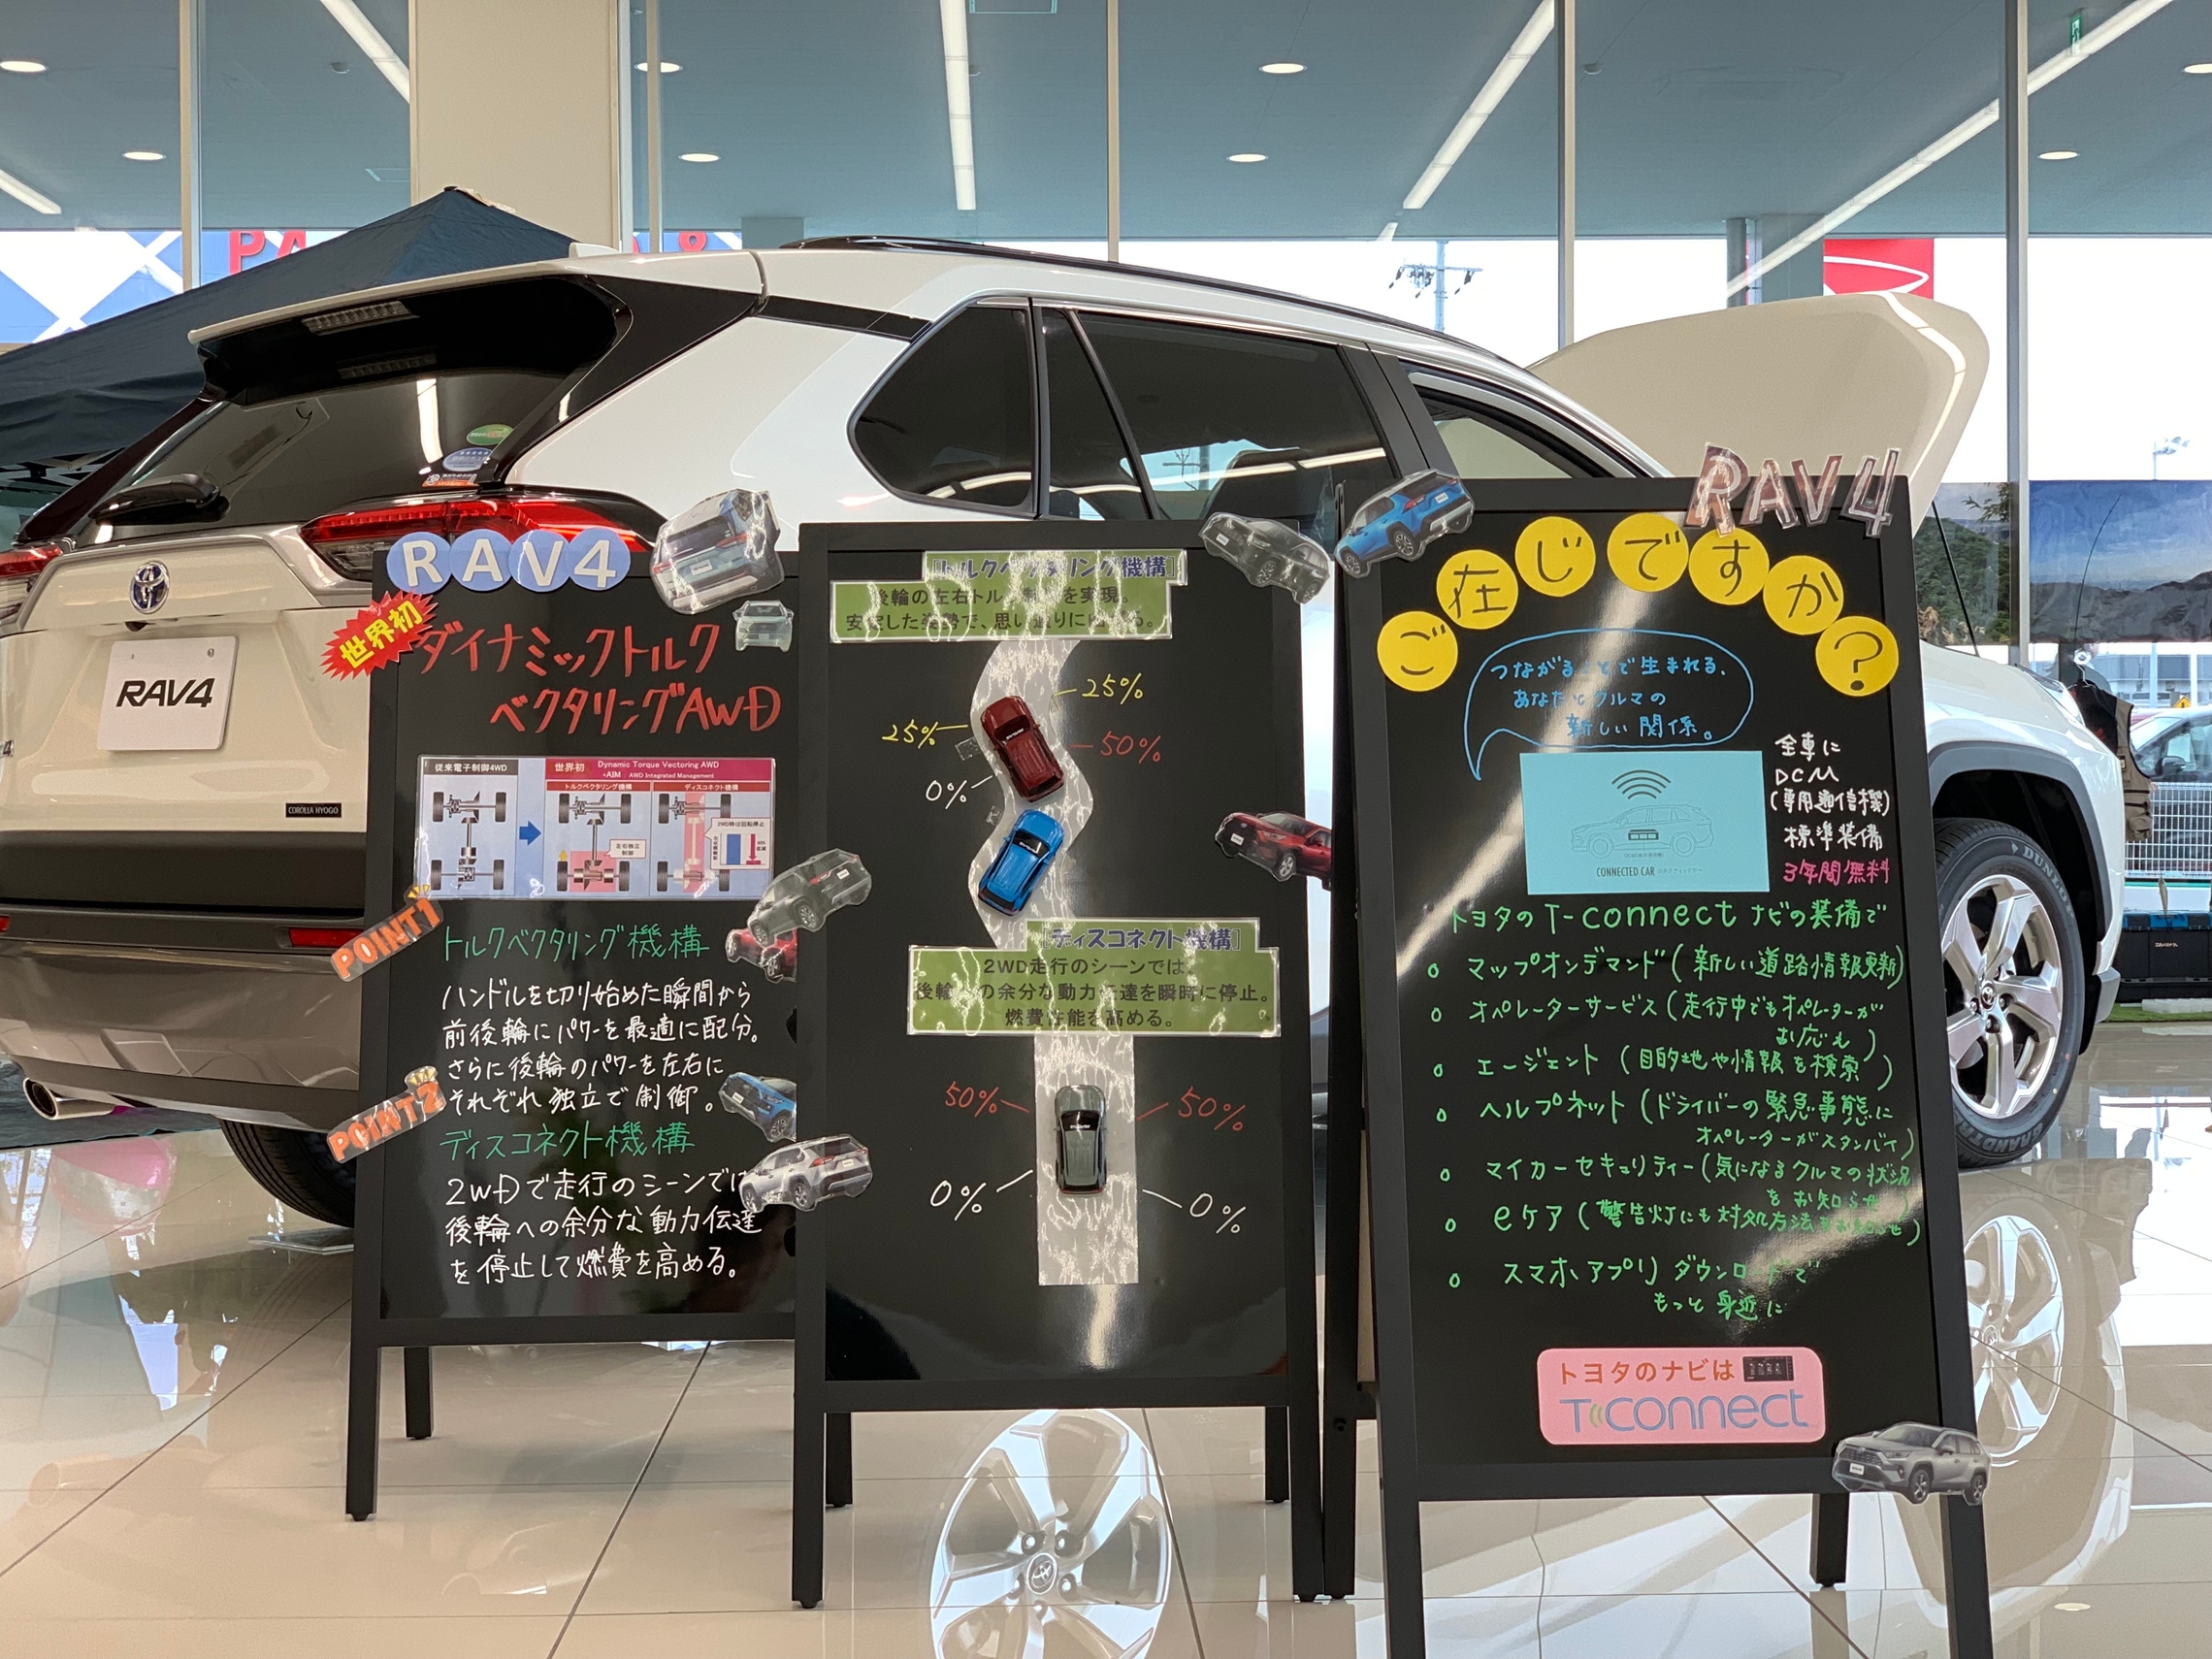 RAV4
COROLLA HYOGO
RAV4
世界初
ダイナミックトルク
ベクタリングAWD
従来電子制御4WD
世界初 Dynamic Torque Vectoring AWD
+AIM : AWD Integrated Management
トルクベクタリング機構
ディスコネクト機構
左右独立
制御
2WD時は回転停止
POINT1
トルクベクタリング機構
ハンドルを切り始めた瞬間から
前後輪にパワーを最適に配分。
さらに後輪のパワーを左右に
それぞれ独立で制御。
POINT2
ディスコネクト機構
2WDで走行のシーンでは
後輪への余分な動力伝達
を停止して燃費を高める。
[トルクベクタリング機構]
後輪の左右トルク を実現。
安定した姿勢で、思い通りに 。
25%
25%
50%
0%
[ディスコネクト機構]
2WD走行のシーンでは、
後輪 の余分な動力伝達を瞬時に停止。
燃費性能を高める。
50%
50%
0%
0%
RAV4
ご在じですか?
つながることで生まれる、
あなたとクルマの
新しい関係。
全車に
DCM
(専用通信機)
標準装備
3年間無料
CONNECTED CAR コネクティッドカー
トヨタのT-connectナビの装備で
○ マップオンデマンド(新しい道路情報更新)
○ オペレーターサービス(走行中でもオペレーターが
お応も)
○ エージェント(目的地や情報を検索)
○ ヘルプネット(ドライバーの緊急事態に
オペレーターがスタンバイ)
○ マイカーセキュリティー(気になるクルマの状況
をお知らせ
○ eケア(警告灯にも対処方法をお知らせ)
○ スマホアプリダウンロードで
もっと身近に
トヨタのナビは
T-connect
DUNLOP
GRANDTREK